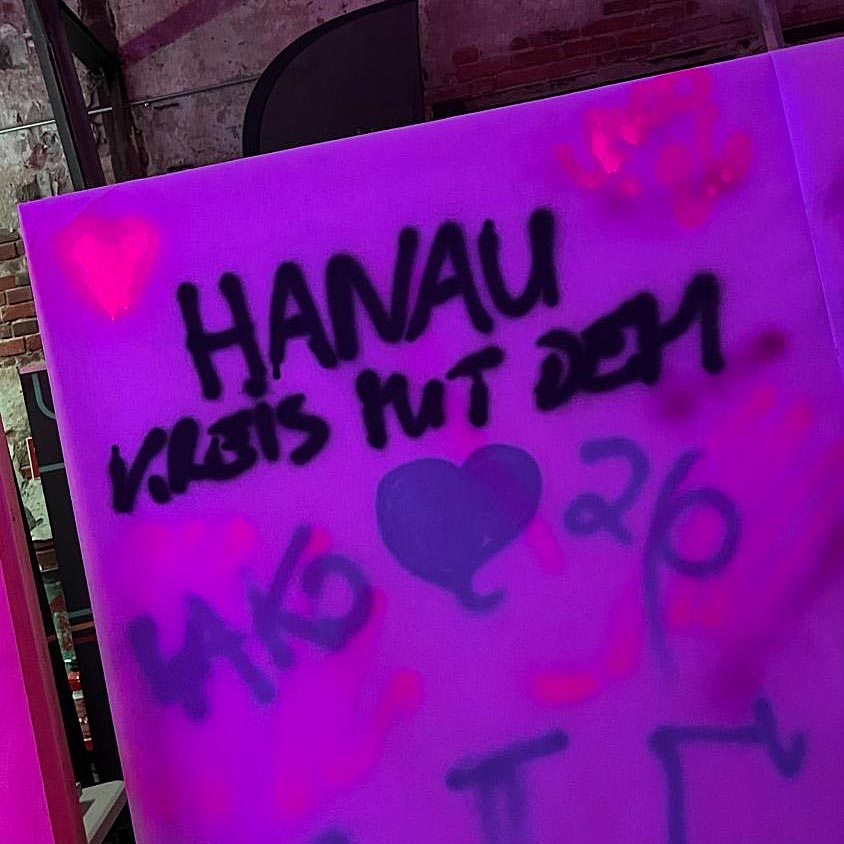 HANAU
KREIS MIT DEM
26
LAKO